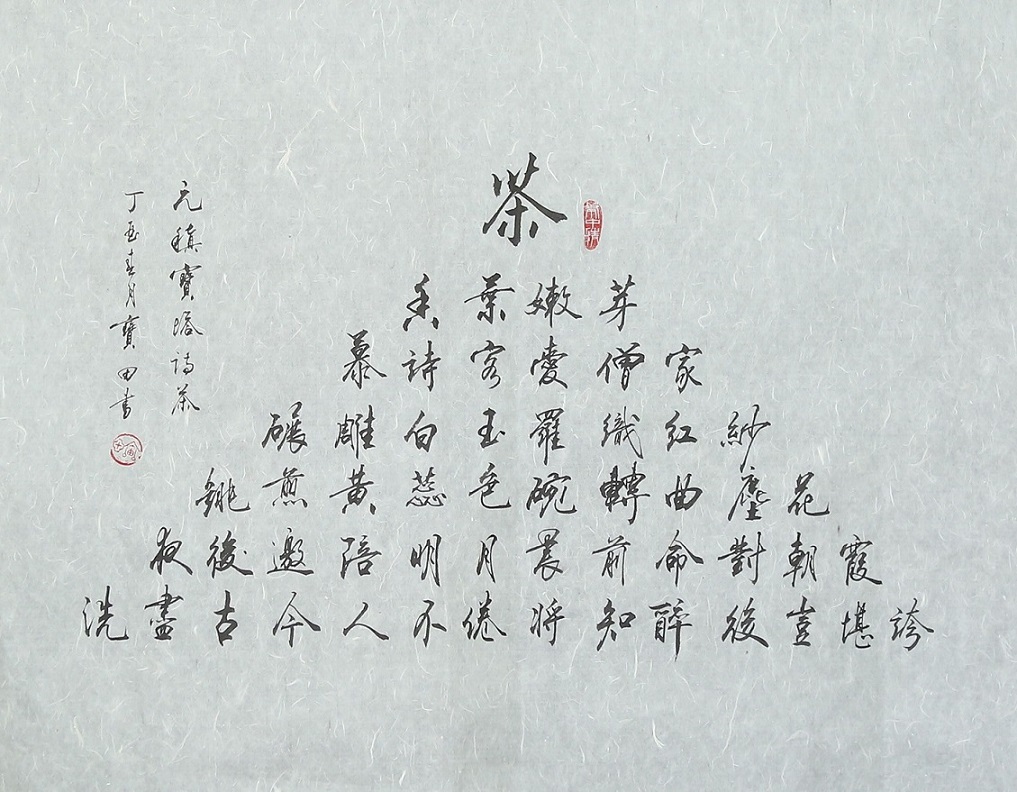 茶
香葉嫩芽
慕詩客愛僧家
碾雕白玉羅織紅紗
銚煎黃蕊色碗轉曲塵花
夜後邀陪明月晨前命對朝霞
洗盡古今人不倦將知醉後豈堪誇
元稹寶塔詩茶
丁酉春月寶田書